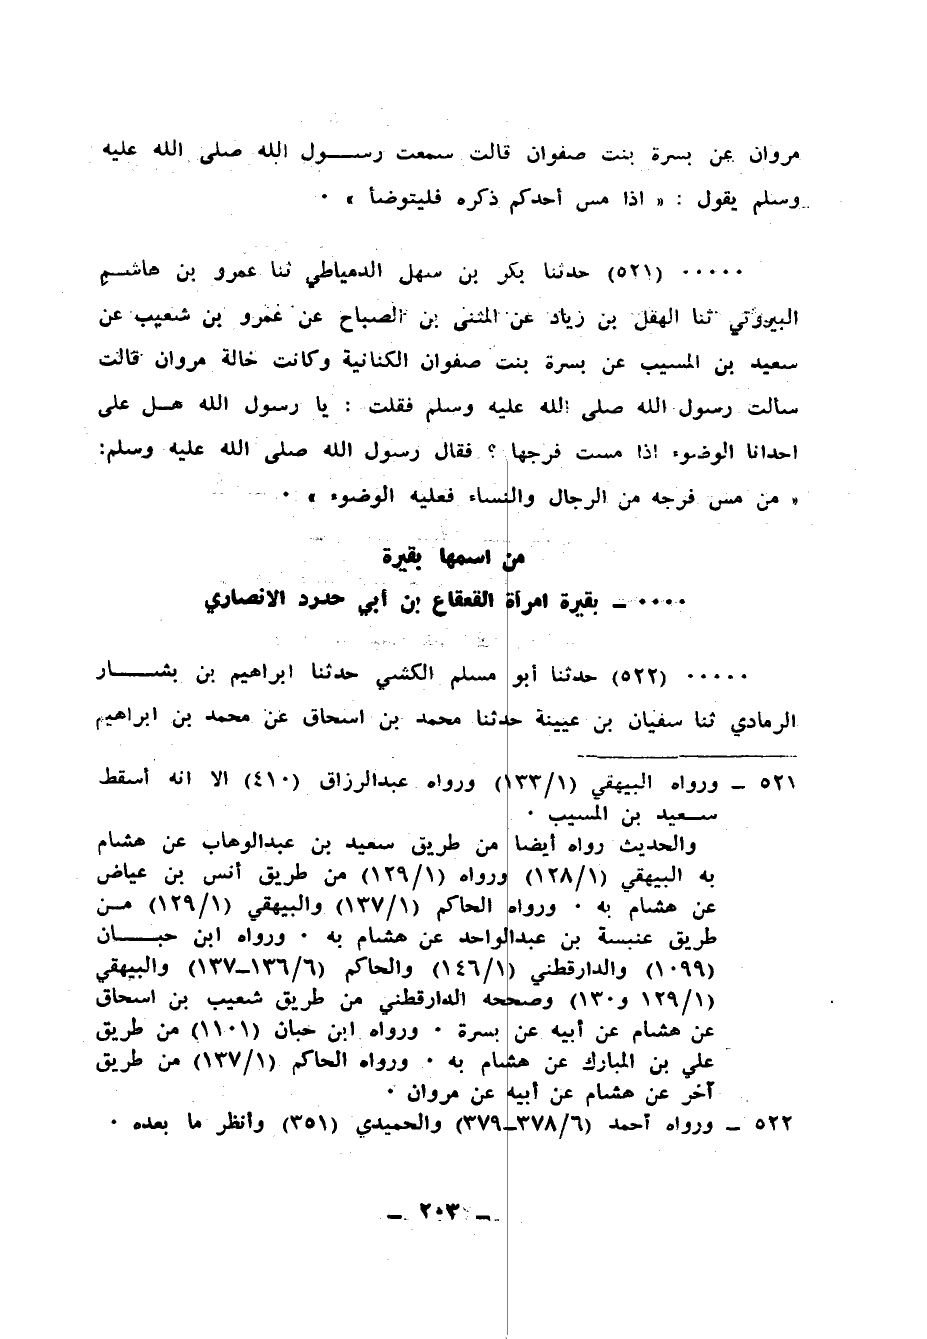 مروان عن بسرة بنت صفوان قالت سمعت رســـول الله صلى الله عليه
وسلم يقول : « اذا مس أحدكم ذكره فليتوضأ » ٠
٠٠٠٠٠ (٥٢١) حدثنا بكر بن سهل الدمياطي ثنا عمرو بن هاشـم
البيروتي ثنا الهقل بن زياد عن المثنى بن الصباح عن عمرو بن شعيب عن
سعيد بن المسيب عن بسرة بنت صفوان الكنانية وكانت خالة مروان قالت
سألت رسول الله صلى الله عليه وسلم فقلت : يا رسول الله هـل على
احدانا الوضوء اذا مست فرجها ؟ فقال رسول الله صلى الله عليه وسلم:
« من مس فرجه من الرجال والنساء فعليه الوضوء » ٠
من اسمها بقيرة
٠٠٠٠ ـ بقيرة امرأة القعقاع بن أبي حدرد الانصاري
٠٠٠٠٠ (٥٢٢) حدثنا أبو مسلم الكشي حدثنا ابراهيم بن بشــــار
الرمادي ثنا سفيان بن عيينة حدثنا محمد بن اسحاق عن محمد بن ابراهيم
٥٢١ ـ ورواه البيهقي (١٣٣/١) ورواه عبدالرزاق (٤١٠) الا انه أسقط
ســعيد بن المسيب ٠
والحديث رواه أيضا من طريق سعيد بن عبدالوهاب عن هشام
به البيهقي (١٢٨/١) ورواه (١٢٩/١) من طريق أنس بن عياض
عن هشام به ٠ ورواه الحاكم (١٣٧/١) والبيهقي (١٢٩/١) مـن
طريق عنبسة بن عبدالواحد عن هشام به ٠ ورواه ابن حبــــان
(١٠٩٩) والدارقطني (١٤٦/١) والحاكم (١٣٦/٦ـ١٣٧) والبيهقي
(١٢٩/١ و١٣٠) وصححه الدارقطني من طريق شعيب بن اسحاق
عن هشام عن أبيه عن بسرة ٠ ورواه ابن حبان (١١٠١) من طريق
علي بن المبارك عن هشام به ٠ ورواه الحاكم (١٣٧/١) من طريق
آخر عن هشام عن أبيه عن مروان ٠
٥٢٢ ـ ورواه أحمد (٣٧٨/٦ـ٣٧٩) والحميدي (٣٥١) وأنظر ما بعده ٠
ـ ٢٠٣ ـ